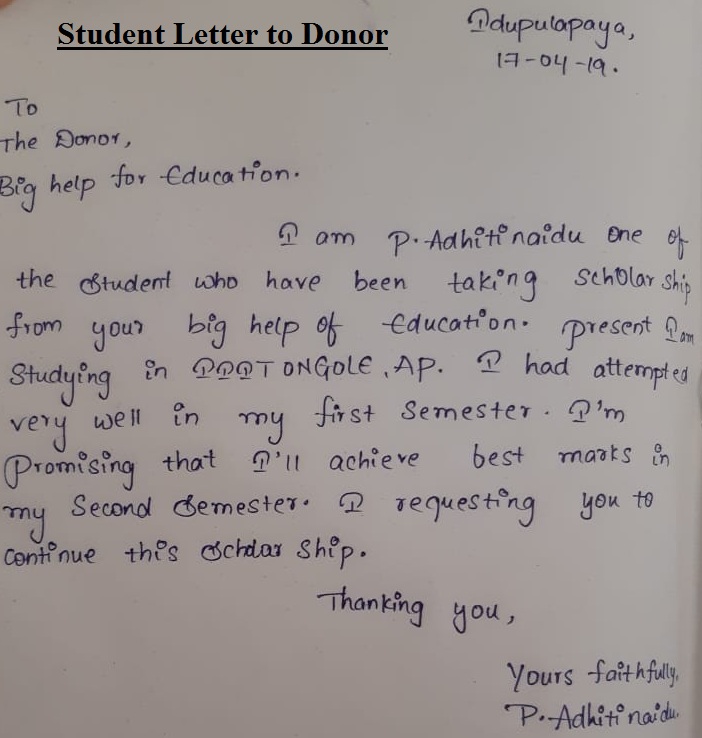 Student Letter to Donor
Idupulapaya,
17-04-19.
To
The Donor,
Big help for Education.
I am P. Adhiti naidu one of
the Student who have been taking Scholar ship
from your big help of Education. present I am
Studying in IIIT ONGOLE, AP. I had attempted
very well in my first Semester. I'm
Promising that I'll achieve best marks in
my Second Semester. I requesting you to
continue this Scholar Ship.
Thanking you,
Yours faithfully,
P. Adhiti naidu.